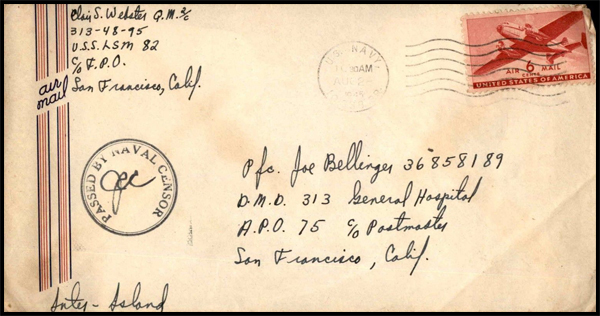 Clair S. Webster Q.M. 3/c
313-48-95
U.S.S. LSM 82
c/o F.P.O.
San Francisco, Calif.
air
mail
U.S. NAVY
AM
AIR 6 MAIL
CENTS
UNITED STATES OF AMERICA
PASSED BY NAVAL CENSOR
Pfc. Joe Bellinger 36858189
D.M.D. 313 General Hospital
A.P.O. 75 c/o Postmaster
San Francisco, Calif.
Inter-Island